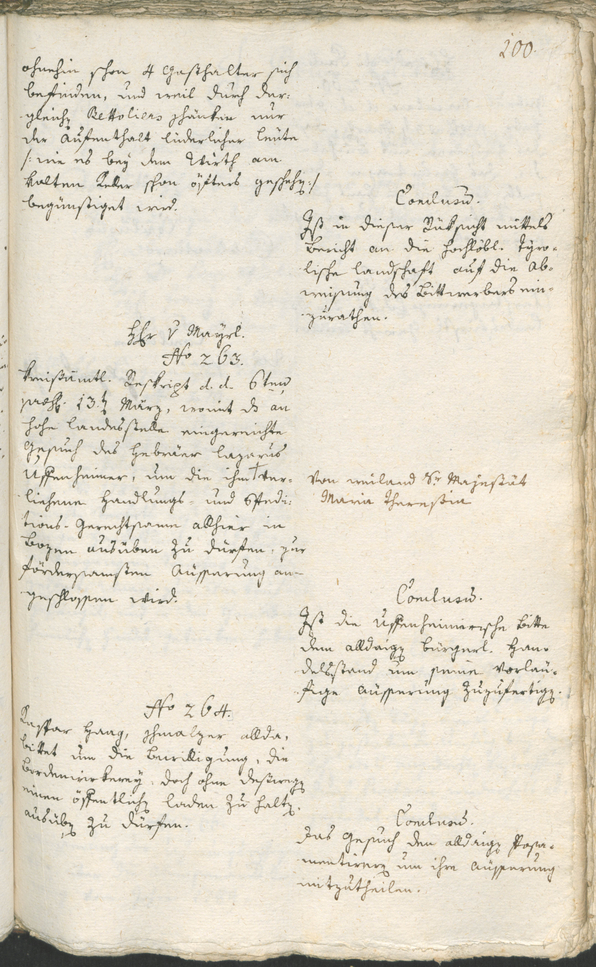 200.
ohnehin schon 4 Gasthalter sich
befinden, und weil durch der-
gleichen schänken nur
der Aufenthalt lüderlicher leüte
/: wie es bey dem Wirth am
kalten Keller schon öfters geschehen :/
begünstiget wird.
Conclusum.
Ist in dieser Rüksicht mittels
Bericht an die Hochlöbl. Tyro-
lische Landschaft auf die Ab-
weisung des Bittwerbers ein-
zurathen.
Herr v Mayrl.
No 263.
kreisämtl. Reskript d. d. 6ten
praes. 13ten März, womit das an
hohe Landesstelle eingereichte
Gesuch des Hebräer Lazarus
Uffenheimer, um die ihm † ver-
liehene Handlungs- und Spedi-
tions-Gerechtsame allhier in
Bozen ausüben zu dürfen, zur
fördersamsten Äusserung an-
geschlossen wird.
Von weiland Sr Majestät
Maria Theresia
Conclusum.
Ist die Uffenheimerische Bitte
dem alldaigen bürgerl. Han-
delsstand um seine vorläu-
fige Äusserung zuzufertigen.
No 264.
Kaspar Haag, alda,
bittet um die Bewilligung, die
Bordenwirkerey, doch ohne deswegen
einen öffentlichen laden zu halten,
ausüben zu dürfen.
Conclusum.
Das Gesuch den alldaigen Posa-
mentirern um ihre Äusserung
mitzutheilen.